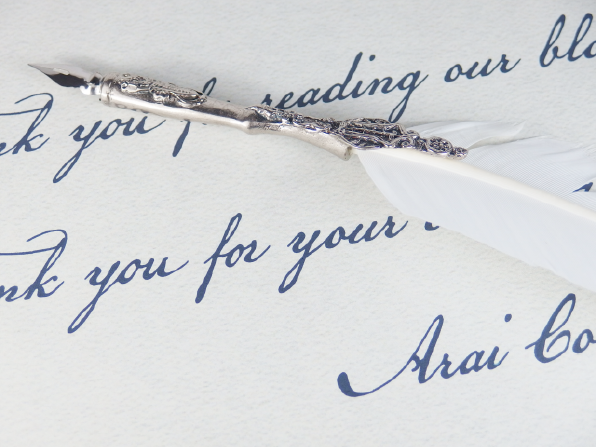 nk you for reading our blo
nk you for your
Arai Co